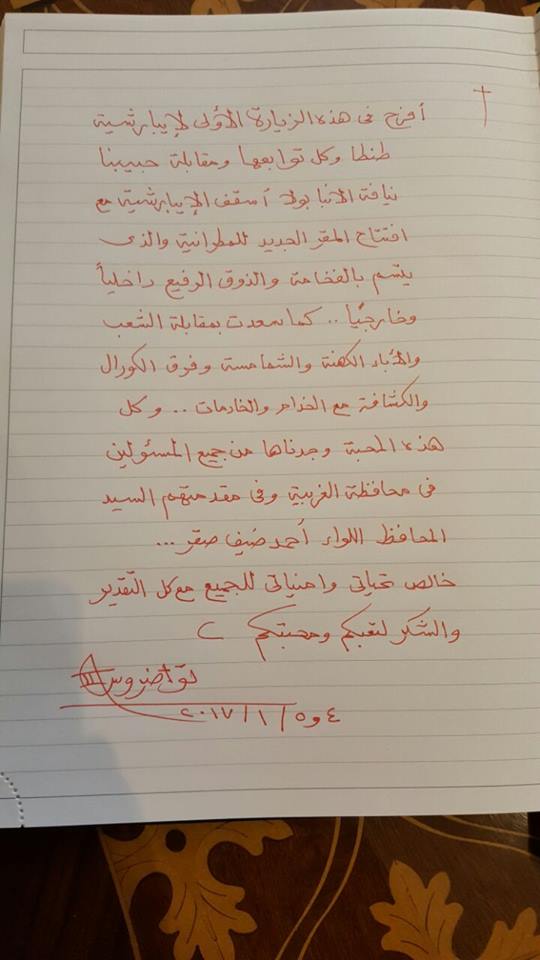 أفرح فى هذه الزيارة الأولى لإيبارشية
طنطا وكل توابعها ومقابلة حبيبنا
نيافة الأنبا بولا أسقف الإيبارشية مع
افتتاح المقر الجديد للمطرانية والذى
يتسم بالفخامة والذوق الرفيع داخلياً
وخارجيًا .. كما سعدت بمقابلة الشعب
والآباء الكهنة والشمامسة وفرق الكورال
والكشافة مع الخدام والخادمات .. وكل
هذه المحبة وجدناها من جميع المسئولين
فى محافظة الغربية وفى مقدمتهم السيد
المحافظ اللواء أحمد ضيف صقر ...
خالص تحياتى وامنياتى للجميع مع كل التقدير
والشكر لتعبكم ومحبتكم
تواضروس II
٤ و٥ / ١ / ٢٠١٧